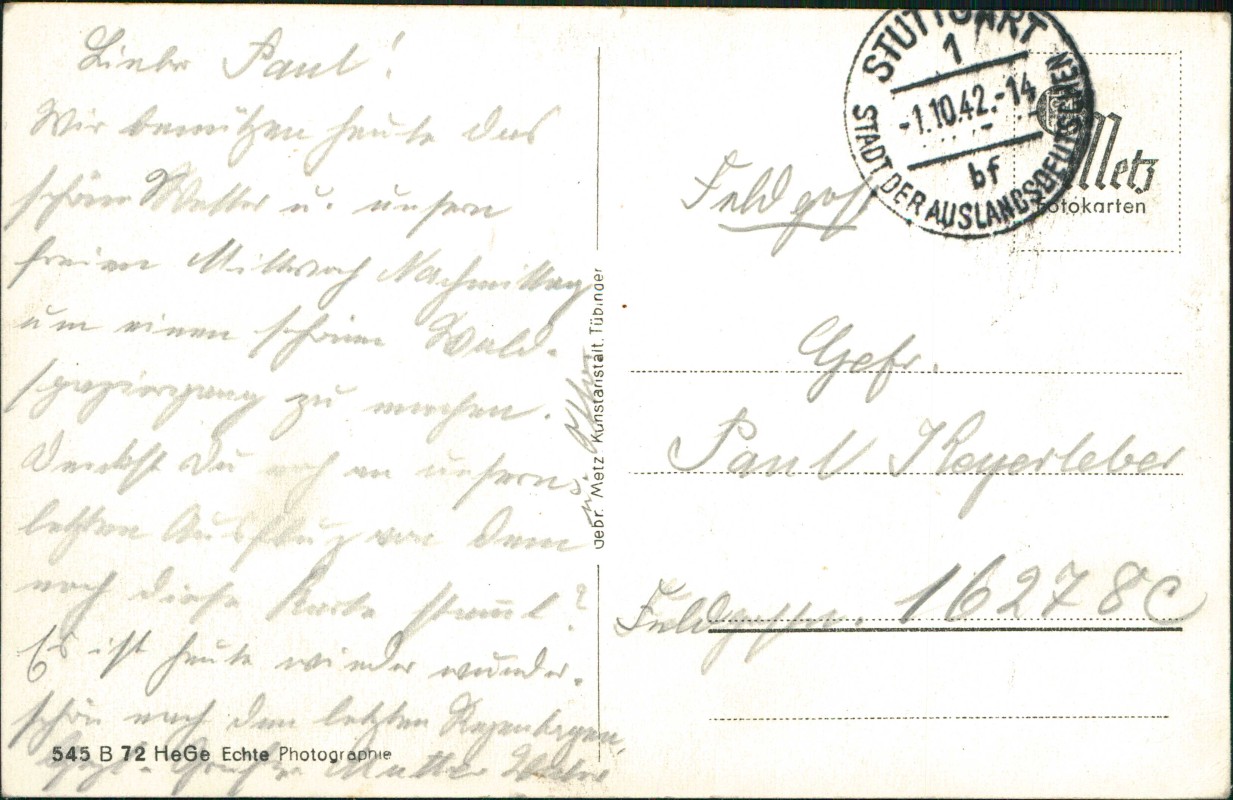 Lieber Paul!
Wir benützen heute das
schöne Wetter u. unsern
freien Mittwoch Nachmittag
um einen schönen Wald-
spaziergang zu machen.
Denkst Du noch an unsern
letzten Ausflug von dem
noch diese Karte stammt?
Es ist heute wieder wunder-
schön nach den letzten Regentagen.
Herzl. Grüße Mutter Vater
u.
545 B 72 HeGe Echte Photographie
Gebr. Metz Kunstanstalt, Tübingen
STUTTGART
1
-1.10.42.-14
bf
STADT DER AUSLANDSDEUTSCHEN
Metz
Fotokarten
Feldpost
Gefr.
Paul Keyerleber
Feldpostnr. 16278C